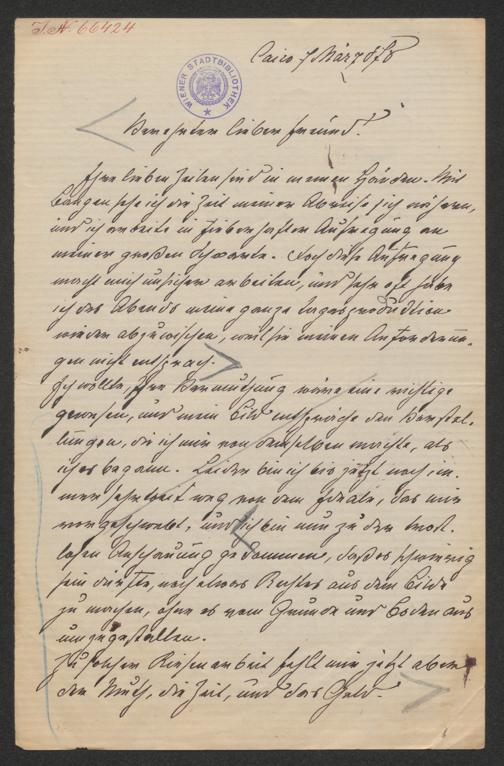 J. N. 66424
WIENER STADTBIBLIOTHEK
Cairo, 7 März 878
Verehrter lieber Freund!
Ihre lieben Zeilen sind in meinen Händen. Mit
Bangen sehe ich die Zeit meiner Abreise sich nähern,
und ich arbeite in fieberhafter Aufregung an
meiner großen Schwarte. Doch diese Aufregung
macht mich unsicher arbeiten, und sehr oft habe
ich des Abends meine ganze Tagesproduktion
wieder abzuwischen, weil sie meinen Anforderun-
gen nicht entsprach.
Ich wollte, Ihre Vermuthung wäre eine richtige
gewesen, und mein Bild entspräche den Vorstel-
lungen, die ich mir von demselben machte, als
ich es begann. Leider bin ich bis jetzt noch im-
mer sehr weit weg von dem Ideale, das mir
vorgeschwebt, und ich bin nun zu der trost-
losen Anschauung gekommen, daß es schwierig
sein dürfte, noch etwas Rechtes aus dem Bilde
zu machen, ohne es vom Grunde und Boden aus
umzugestalten.
Zu solcher Riesenarbeit fehlt mir jetzt aber
der Muth, die Zeit, und das Geld.